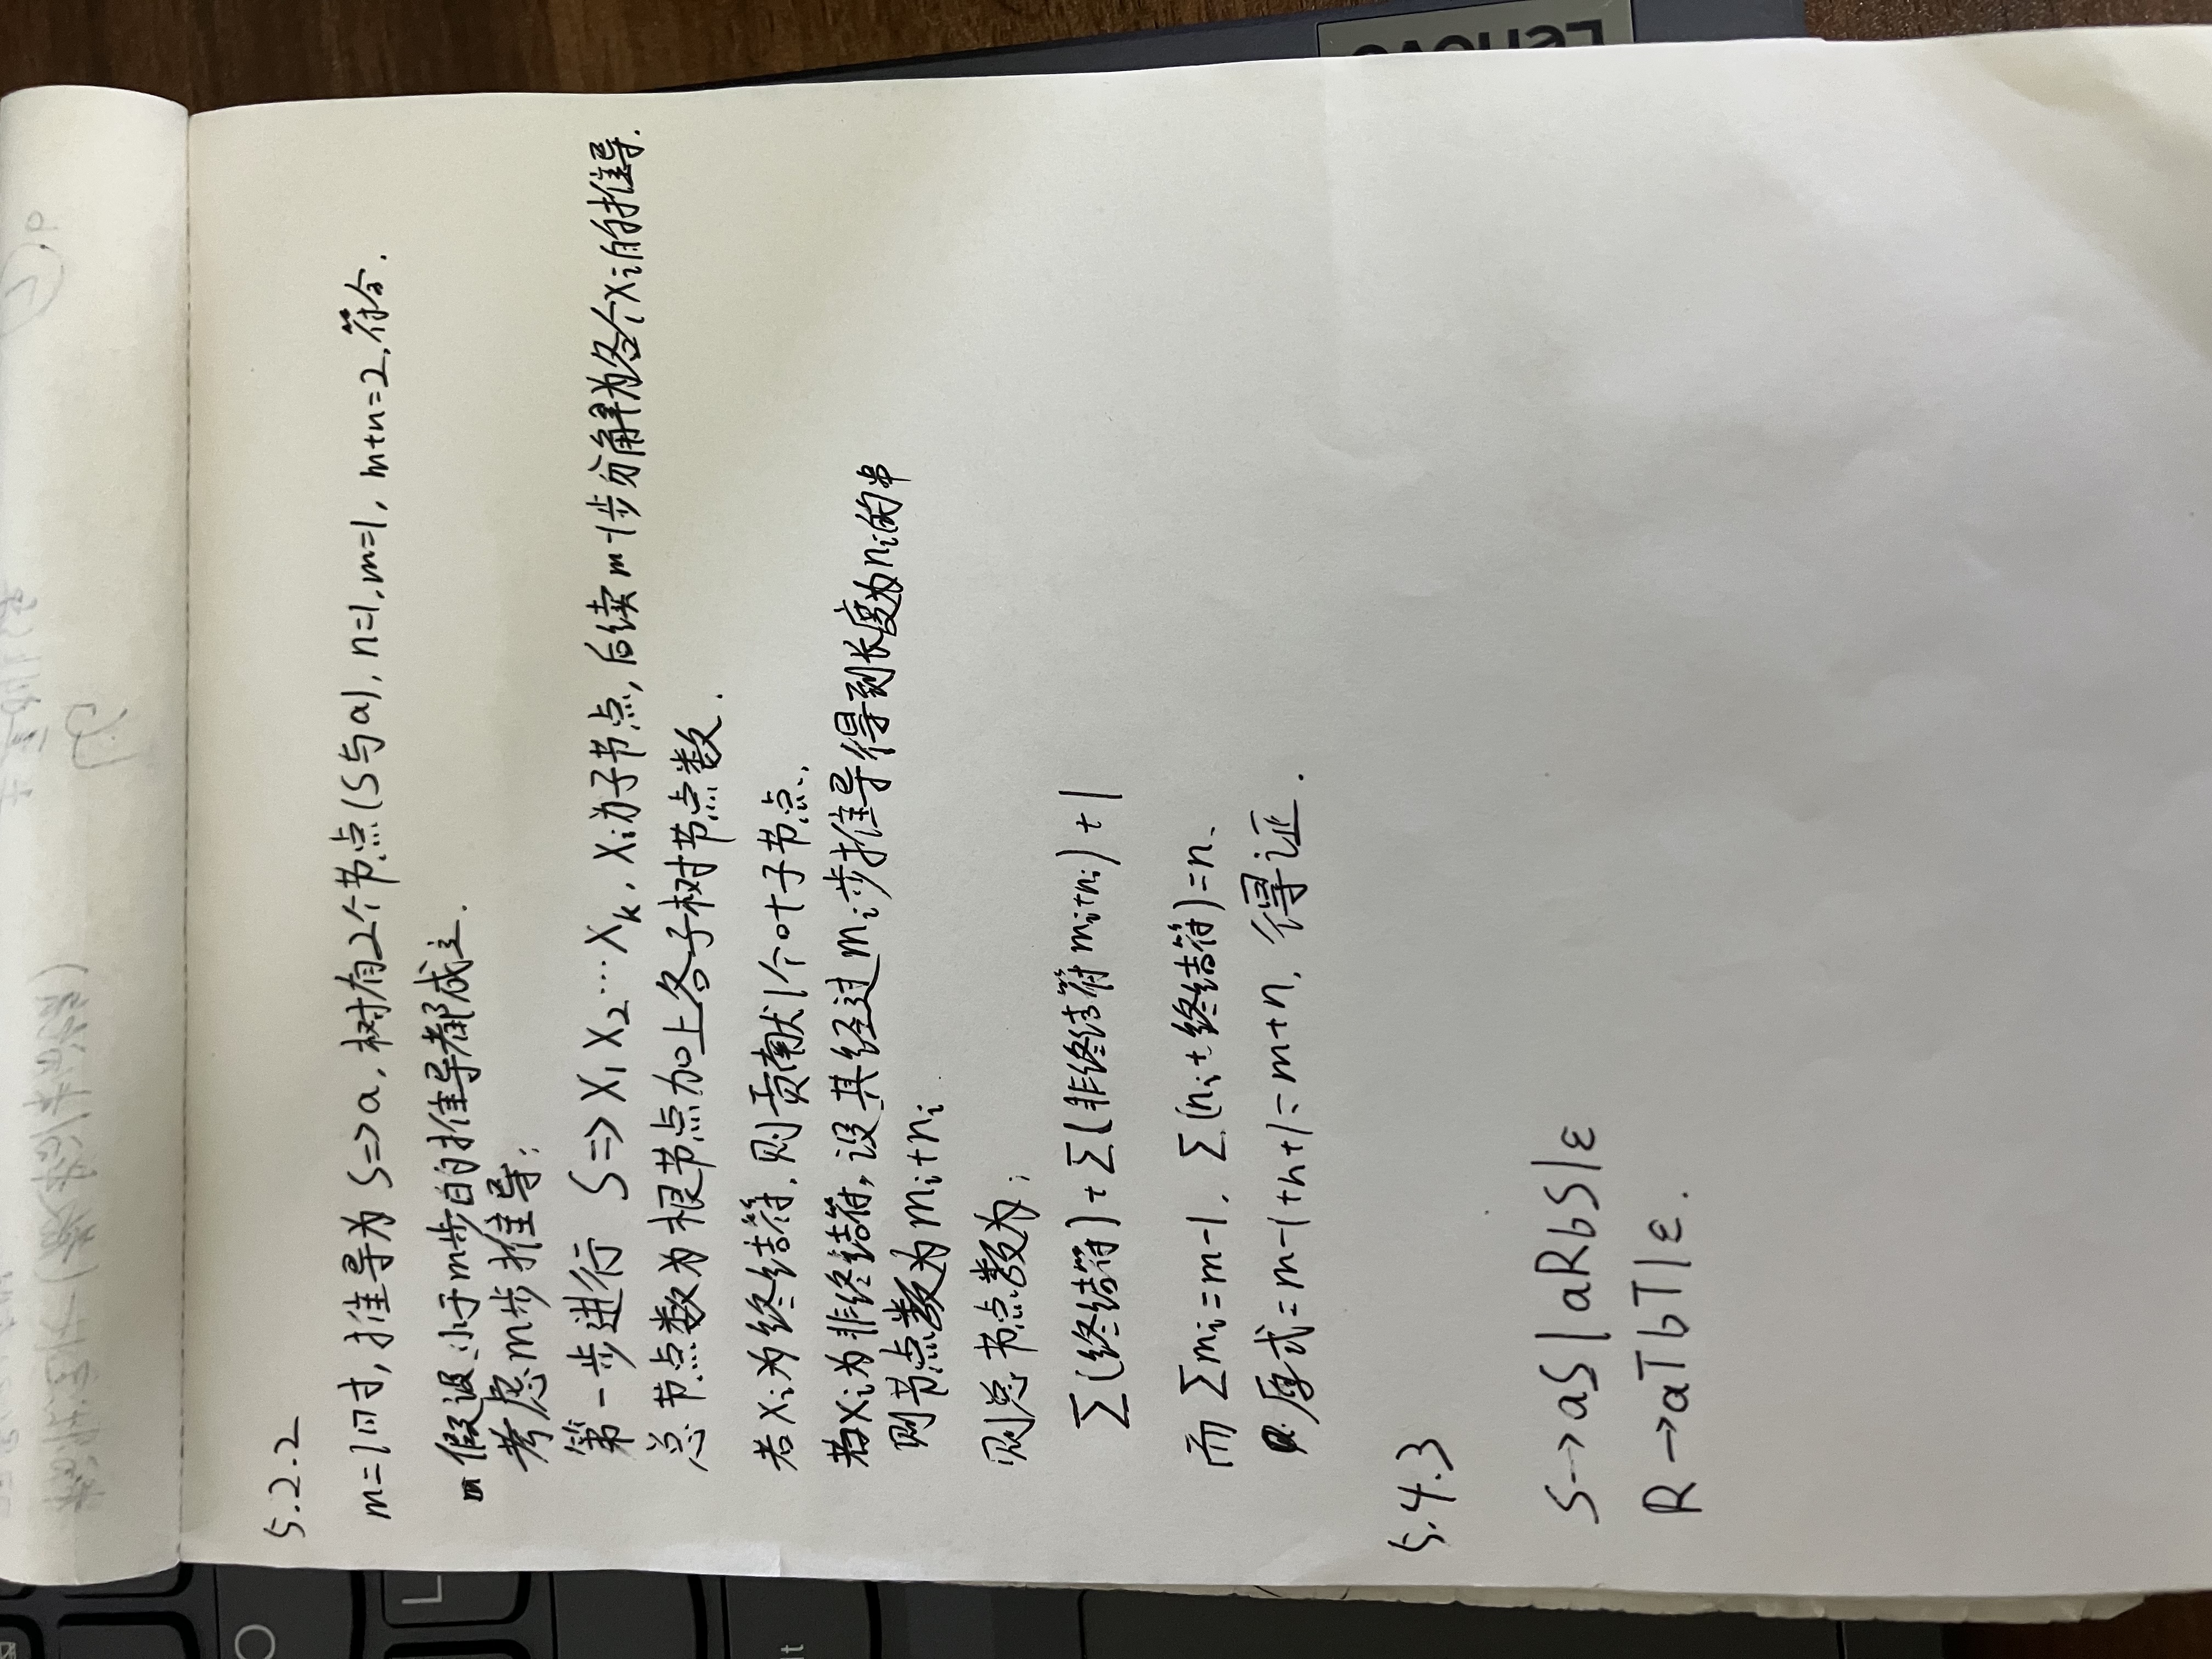 5.2.2
m=1时,推导为 S=>a,树有2个节点(S与a),n=1,m=1,m+n=2,符合.
假设小于m步的推导都成立.
考虑m步推导:
第一步进行 S=>X₁X₂…Xₖ,Xᵢ为子节点,后续m-1步分解为各个Xᵢ的推导.
总节点数为根节点加上各子树节点数.
若Xᵢ为终结符,则贡献1个叶子节点.
若Xᵢ为非终结符,设其经过mᵢ步推导得到长度为nᵢ的串
则节点数为mᵢ+nᵢ
则总节点数为:
∑(终结符)+∑(非终结符mᵢ+nᵢ)+1
而∑mᵢ=m-1,∑(nᵢ+终结符)=n.
原式=m-1+n+1=m+n,得证.
5.4.3
S→aS|aRbS|ε
R→aTbT|ε.
Lenovo